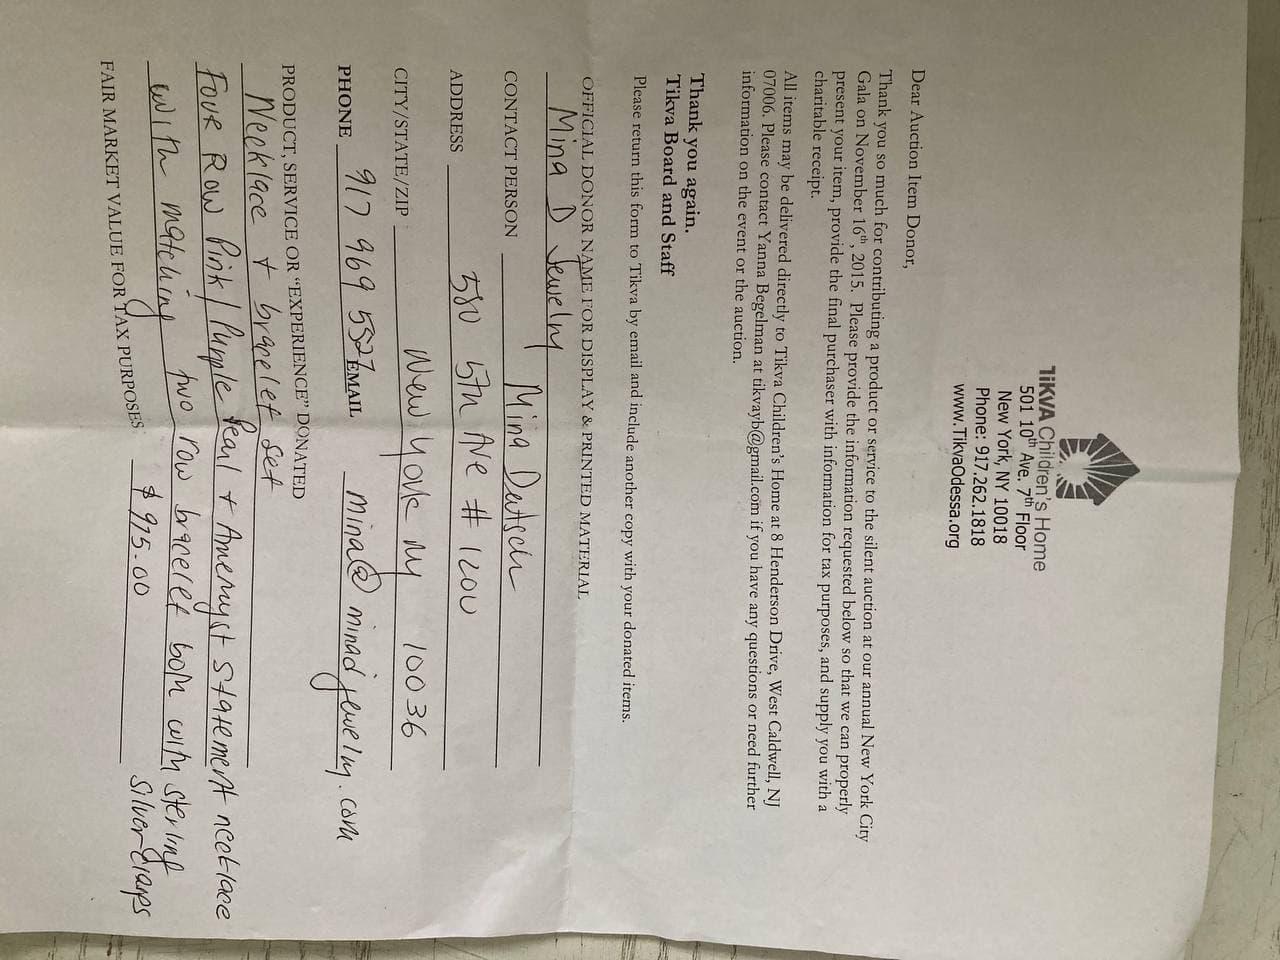 TiKVA Children's Home
501 10th Ave. 7th Floor
New York, NY 10018
Phone: 917.262.1818
www.TikvaOdessa.org
Dear Auction Item Donor,
Thank you so much for contributing a product or service to the silent auction at our annual New York City
Gala on November 16th, 2015. Please provide the information requested below so that we can properly
present your item, provide the final purchaser with information for tax purposes, and supply you with a
charitable receipt.
All items may be delivered directly to Tikva Children's Home at 8 Henderson Drive, West Caldwell, NJ
07006. Please contact Yanna Begelman at tikvayb@gmail.com if you have any questions or need further
information on the event or the auction.
Thank you again.
Tikva Board and Staff
Please return this form to Tikva by email and include another copy with your donated items.
OFFICIAL DONOR NAME FOR DISPLAY & PRINTED MATERIAL
Mina D Jewelry
CONTACT PERSON Mina Deutsch
ADDRESS 580 5th Ave # 1200
CITY/STATE/ZIP New York NY 10036
PHONE 917 969 5527 EMAIL mina@minadjewelry.com
PRODUCT, SERVICE OR "EXPERIENCE" DONATED
Necklace + bracelet set
Four Row Pink/Purple Pearl + Amethyst statement necklace
with matching two row bracelet both with sterling
silver clasps
FAIR MARKET VALUE FOR TAX PURPOSES: $975.00